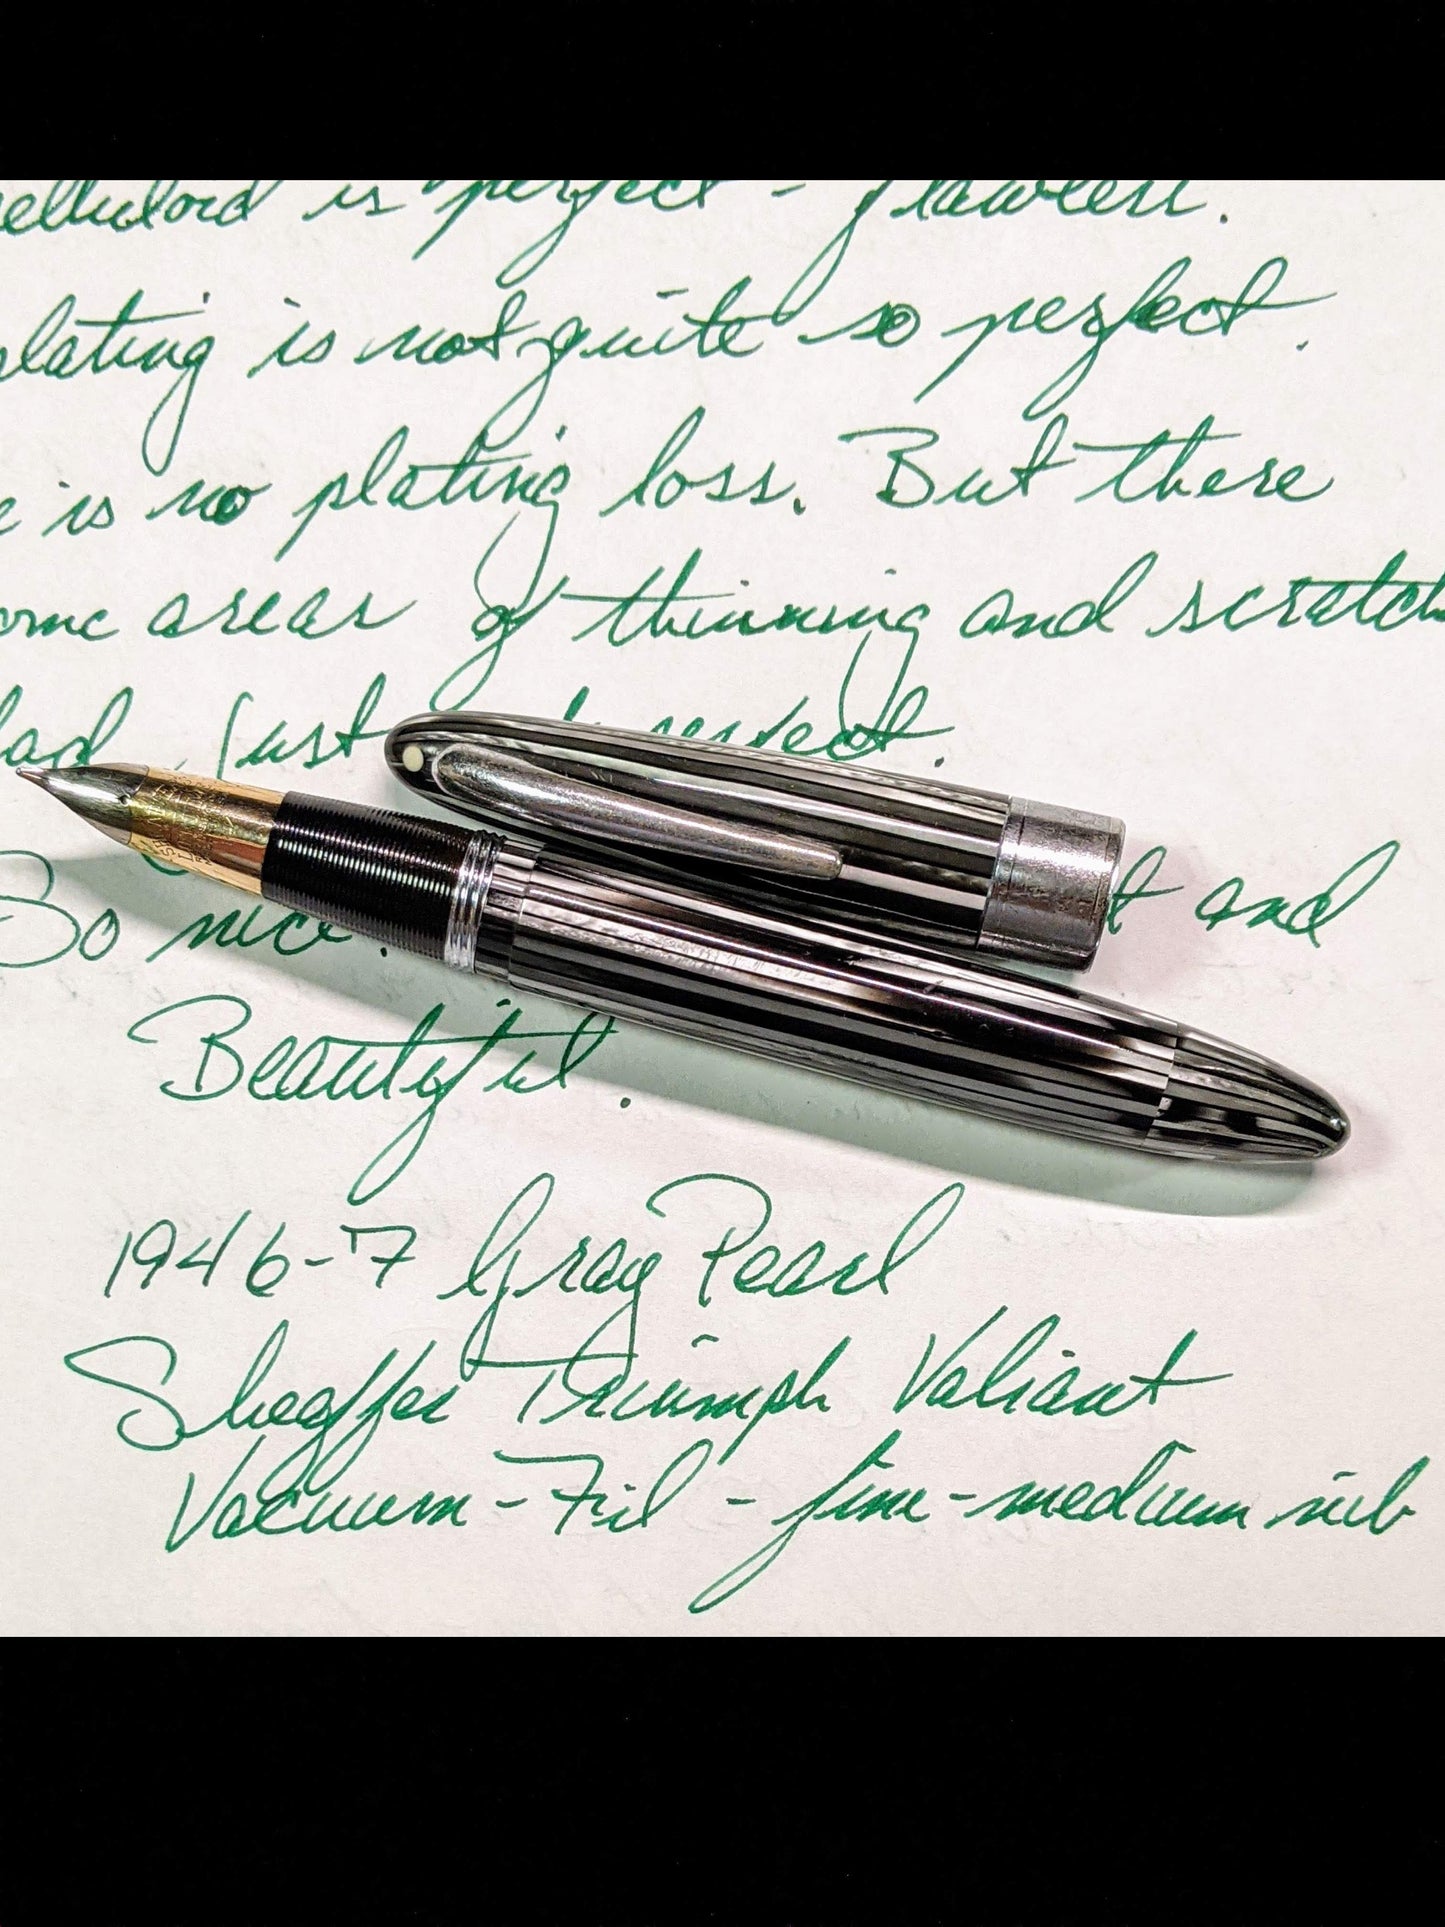 celluloid is perfect - flawless.
plating is not quite so perfect.
e is no plating loss. But there
some areas of thinning and scratch
bad, just perfect.
So nice. t and
Beautiful.
1946-7 Gray Pearl
Sheaffer Triumph Valiant
Vacuum-Fil - fine-medium nib